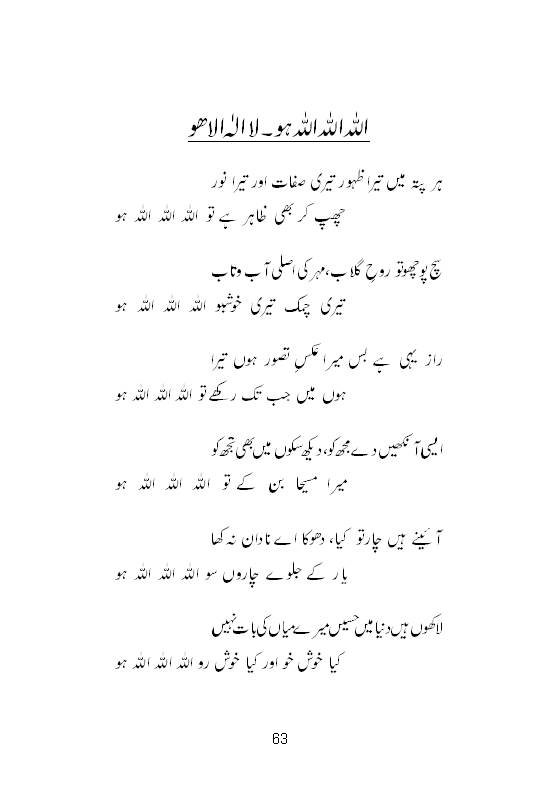 اللہ اللہ اللہ ہو۔ لا الٰہ الا ھو
ہر پتہ میں تیرا ظہور تیری صفات اور تیرا نور
چھپ کر بھی ظاہر ہے تو اللہ اللہ اللہ ہو
سچ پوچھو تو روحِ گلاب، مہر کی اصلی آب وتاب
تیری چمک تیری خوشبو اللہ اللہ اللہ ہو
راز یہی ہے بس میرا عکسِ تصور ہوں تیرا
ہوں میں جب تک رکھے تو اللہ اللہ اللہ ہو
ایسی آنکھیں دے مجھ کو، دیکھ سکوں میں بھی تجھ کو
میرا مسیحا بن کے تو اللہ اللہ اللہ ہو
آئینے ہیں چار تو کیا، دھوکا اے نادان نہ کھا
یار کے جلوے چاروں سو اللہ اللہ اللہ ہو
لاکھوں ہیں دنیا میں حسیں میرے میاں کی بات نہیں
کیا خوش خو اور کیا خوش رو اللہ اللہ اللہ ہو
63